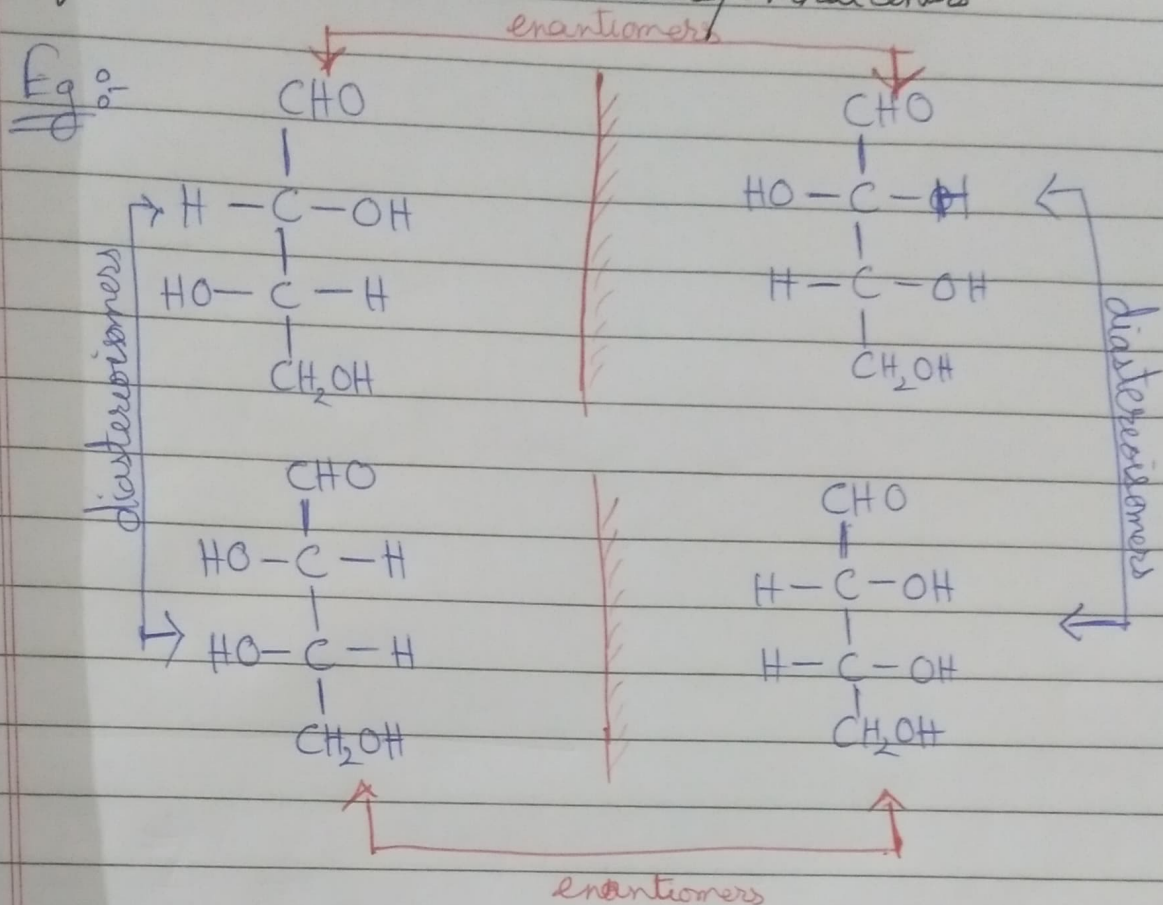 enantiomers
Eg :-
CHO CHO
H – C – OH HO – C – H
HO – C – H H – C – OH
CH₂OH CH₂OH
diastereoisomers diastereoisomers
CHO CHO
HO – C – H H – C – OH
HO – C – H H – C – OH
CH₂OH CH₂OH
enantiomers